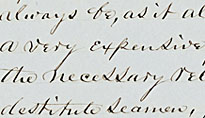 always be, as it al
a very expensive
the necessary rel
destitute seamen,